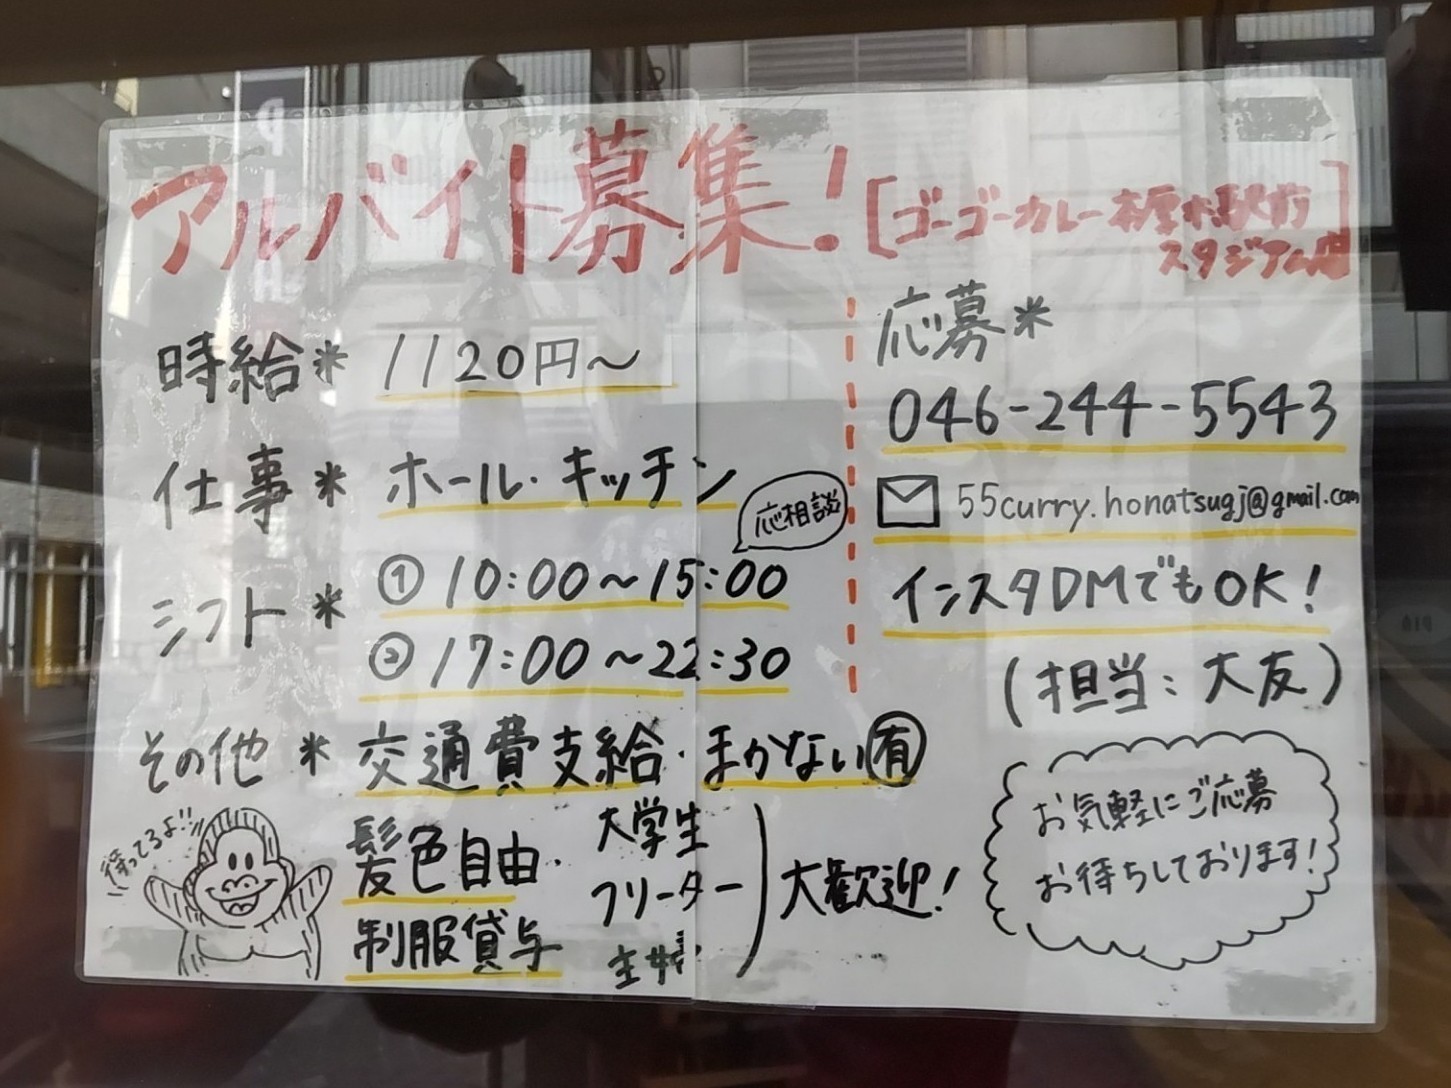 アルバイト募集！
[ゴーゴーカレー本厚木駅前
スタジアム]
時給＊ 1120円～
仕事＊ ホール・キッチン
シフト＊ ① 10:00～15:00
応相談
② 17:00～22:30
その他＊ 交通費支給・まかない㊒
髪色自由・
制服貸与
大学生
フリーター
主婦
大歓迎！
待ってるよ!!
応募＊
046-244-5543
55curry.honatsugj@gmail.com
インスタDMでもOK！
(担当：大友)
お気軽にご応募
お待ちしております！